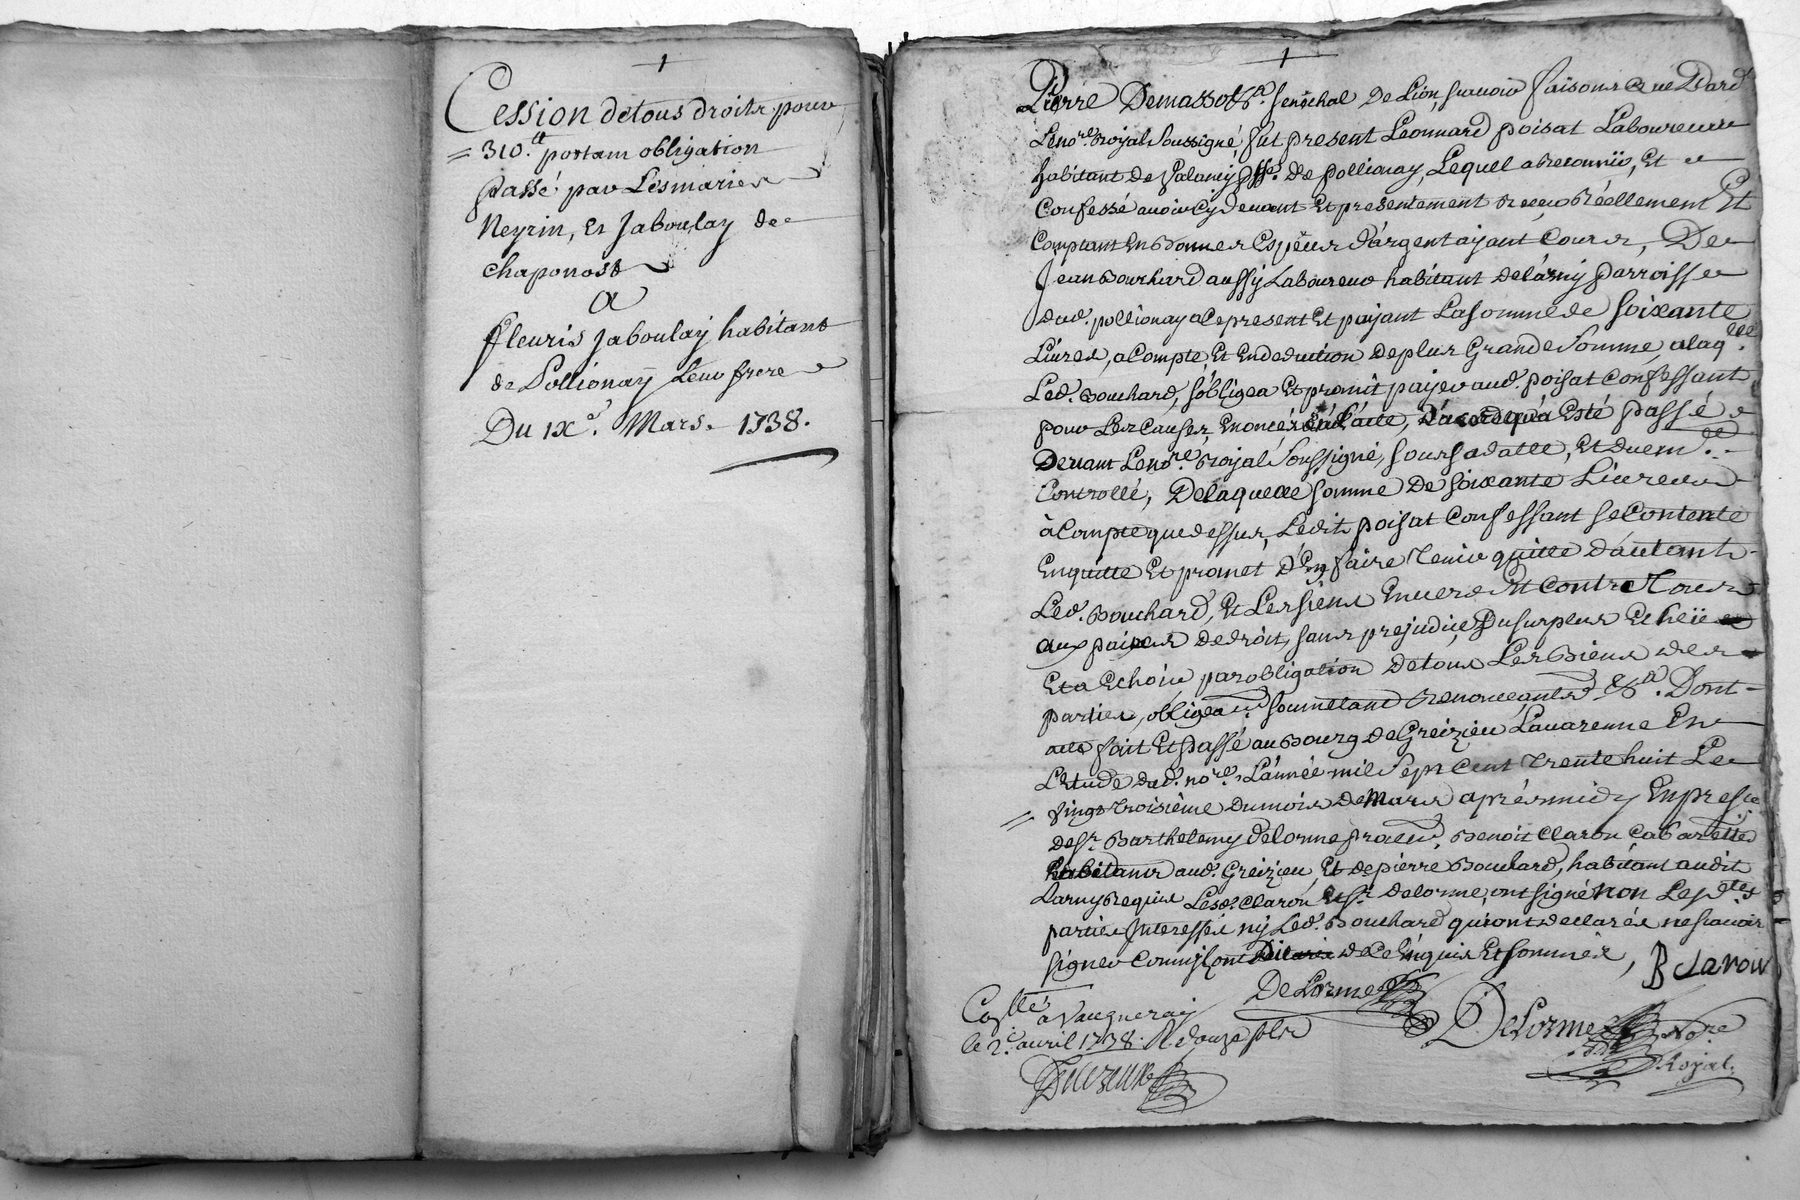 1
Cession detous droits pour
= 310.tt portant obligation
passé par Lesmariez
Neyrin, et Jaboulay de
chaponost
A
fleuris Jaboulay habitant
de Pollionay Leur frere
Du IXe. Mars. 1738.
1
Pierre Demasso &a. senéchal de Lion, scavoir faisons que Pard.
Lenore. Royal Soussigné, fut present Leonnard poisat Laboureur
habitant de psse. de pollionay, Lequel a reconnü, Et
Confessé avoir cy devant Et presentement receu Réellement Et
Comptant En bonnes Espéces d'argent ajant Cours, De
Jean Bouchard aussy Laboureur habitant delarny parroisse
dud. pollionay ace present Et payant La somme de soixante
Livres, a Compte, Et En deduction de plus Grande somme, a laqelle
Led. Bouchard, s'obligea Et promit payer aud. poisat Confessant
pour Les Causes Enoncées L'acte, Esté passé
Devant Lenore. Royal Soussigné, sous sa datte, Et duem.
Controllé, De laquelle somme De soixante Livres
à Compte que dessus, Ledit poisat Confessant se Contente
En quitte Et promet d'En faire tenir quitte d'autant
Led. Bouchard, Et Les siens Envers Et Contre Tous
aux peines de droit, sans prejudice Du surplus Echeü
Et a Echoir par obligation de tous Les Biens des
parties, obligea soumetant Renonçant &a. Dont
acte fait Et passé au Bourg de Greizieu Lavarenne En
L'etude dud. nore. L'année mil sept Cent Trente huit Le
= vingt troisième du mois de Mars aprés midy En presce
de sr. Barthelemy Delorme, Benoit Claron Cabarettier
habitants aud. Greizieu, Et de pierre Bouchard, habitant audit
Larny Requis Lesd. Claron Et sr. Delorme, ont signé non Lesd.
parties Interessées ny Led. Bouchard qui ont declarés ne scavoir
signer Comm'ils ont de ce Enquis Et sommés,
B Claron
DeLorme
Collé. a Vaugneray
le 2e. avril 1738. R douze sols
DeLorme
Nore
Royal.